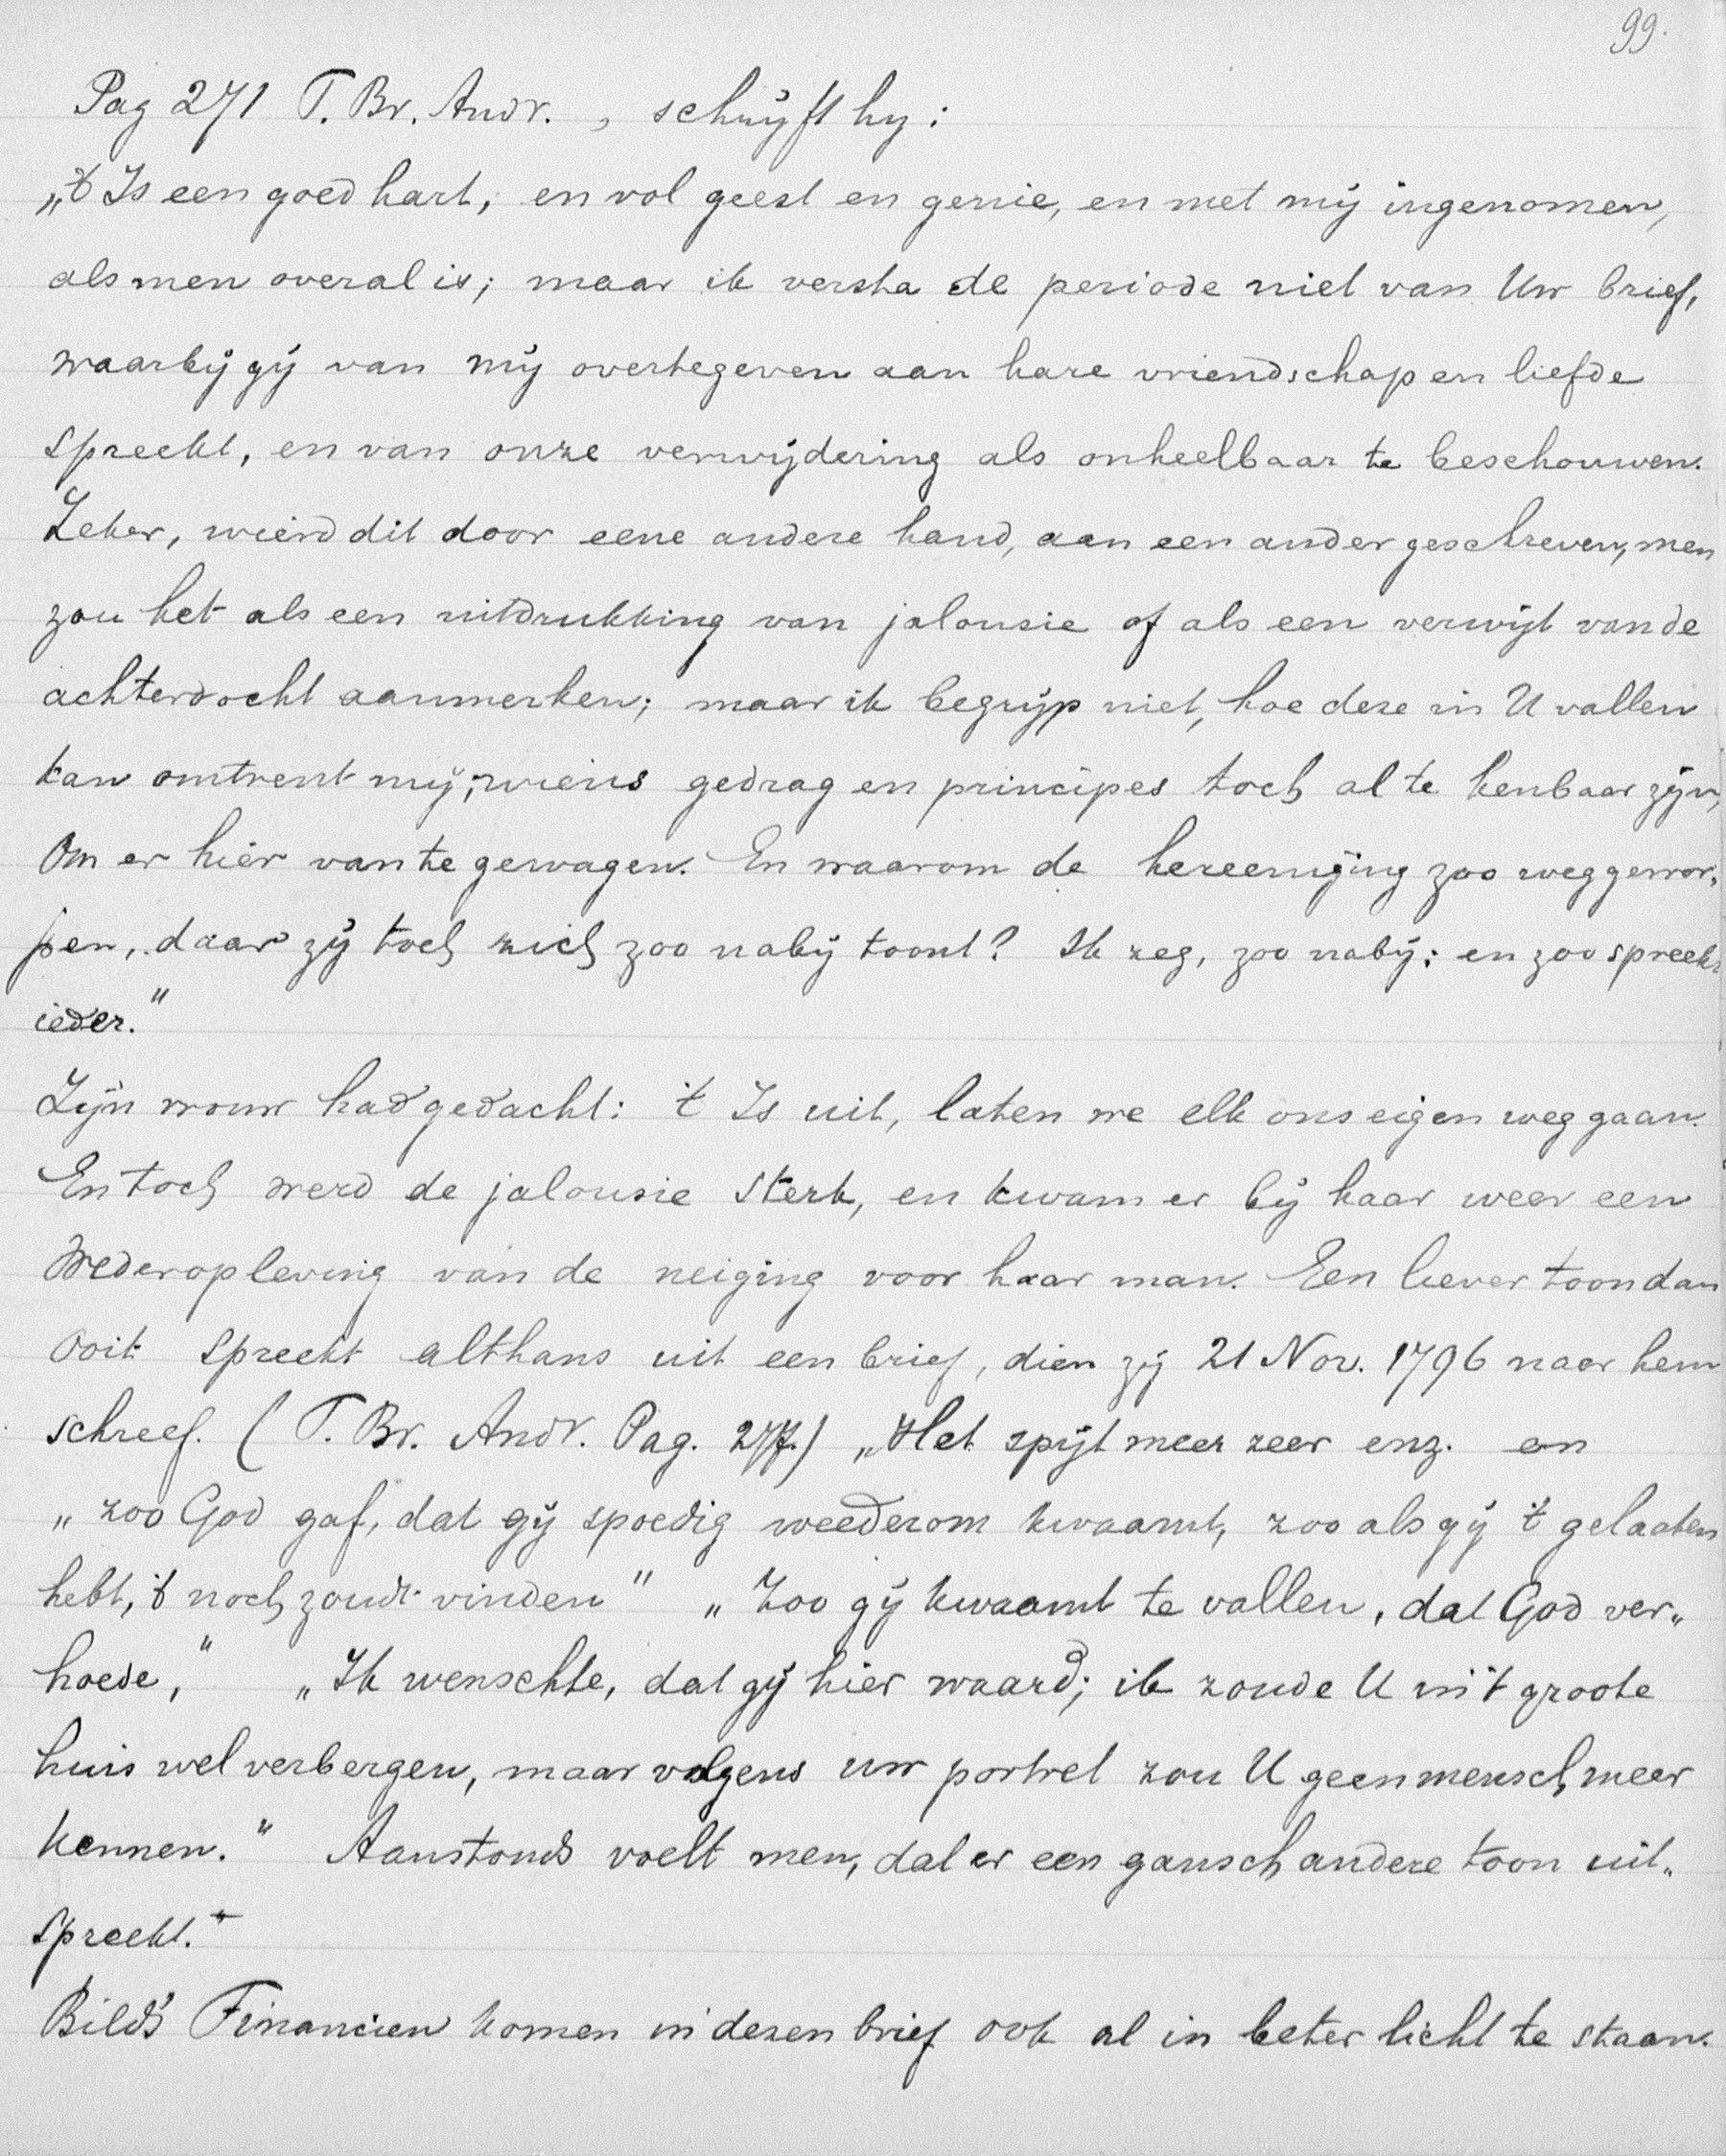 99.
Pag 271 T. Br. Andr. , schrijft hy:
„'t Is een goed hart, en vol geest en genie, en met mij ingenomen,
als men overal is; maar ik versta de periode niet van Uw brief,
waarbij gij van mij overtegeven aan hare vriendschap en liefde
spreekt, en van onze verwijdering als onheelbaar te beschouwen.
Zeker, wierd dit door eene andere hand, aan een ander geschreven, men
zou het als een uitdrukking van jalousie of als een verwijt van de
achterdocht aanmerken; maar ik begrijp niet, hoe deze in U vallen
kan omtrent mij, wiens gedrag en principes toch al te kenbaar zijn,
Om er hier van te gewagen. En waarom de hereeniging zoo weggewor„
pen, daar zij toch zich zoo nabij toont? Ik zeg, zoo nabij: en zoo spreekt
ieder."
Zijn vrouw had gedacht: 't Is uit, laten we elk ons eigen weg gaan.
En toch werd de jalousie sterk, en kwam er bij haar weer een
Wederopleving van de neiging voor haar man. Een liever toon dan
Ooit spreekt althans uit een brief, dien zij 21 Nov. 1796 naar hem
schreef. (T. Br. Andr. Pag. 277.) „Het spijt meer zeer enz. en
„zoo God gaf, dat gij spoedig weederom kwaamt, zoo als gij 't gelaaten
hebt, 't noch zoudt vinden" „Zoo gij kwaamt te vallen, dat God ver„
hoede," „Ik wenschte, dat gij hier waard; ik zoude U in 't groote
huis wel verbergen, maar volgens uw portret zou U geen mensch meer
kennen." Aanstonds voelt men, dat er een gansch andere toon uit„
spreekt."
Bild's Financien komen in dezen brief ook al in beter licht te staan.